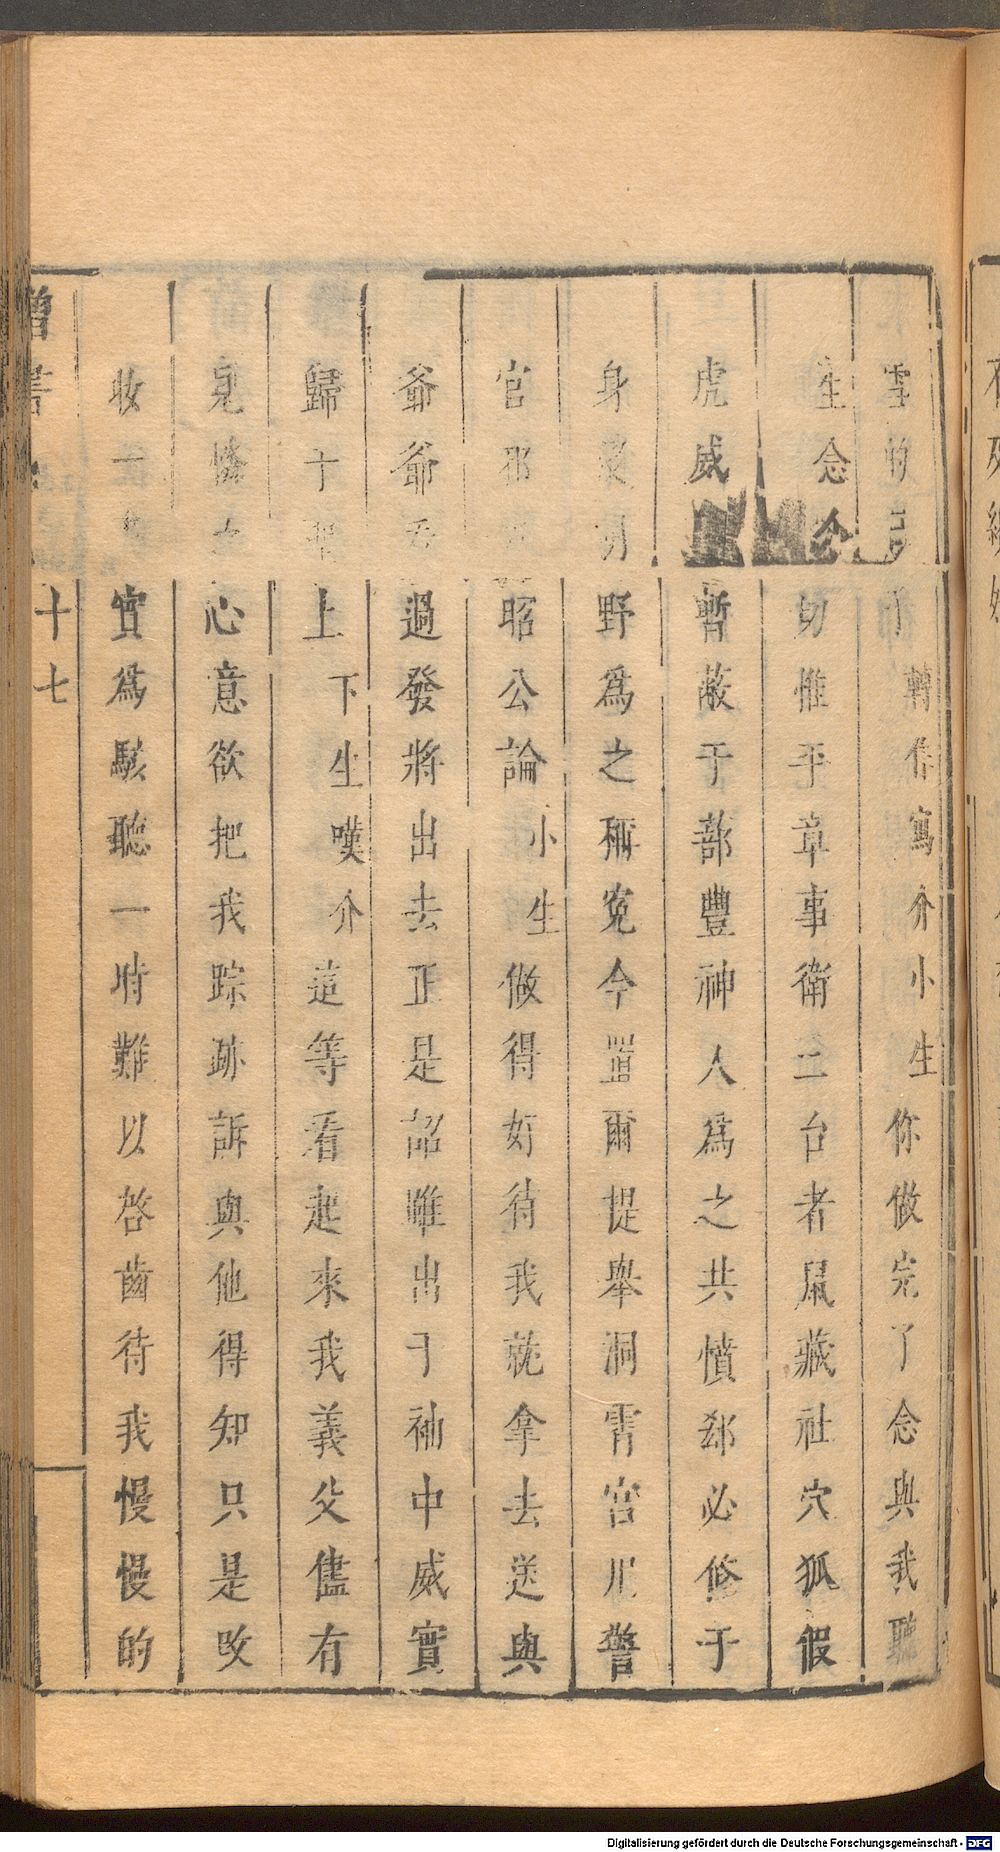 了轉作寫介小生你做完了念與我聽
生念介切惟平章事衛二台者鼠藏社穴狐假
虎威暫蔽于蔀豐神人爲之共憤郄必修于
身野爲之稱寃今爾提舉洞霄宫用警
官邪昭公論小生做得好待我就拿去送與
爺爺看過發將出去正是詔雖出于袖中威實
歸于上下生嘆介這等看起來我義父儘有
見憐之心意欲把我踪跡訴與他得知只是改
妝一實爲駭聽一時難以啓齒待我慢慢的
十七
Digitalisierung gefördert durch die Deutsche Forschungsgemeinschaft - DFG